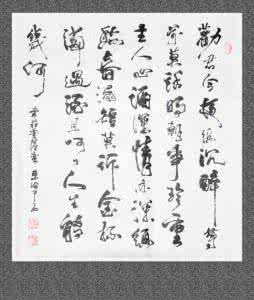 勸君今夜須沉醉樽
前莫話明朝事珍重
主人心酒深情亦深須
愁春漏短莫訴金杯
滿遇酒且呵々人生能
幾何
韋莊菩薩蠻